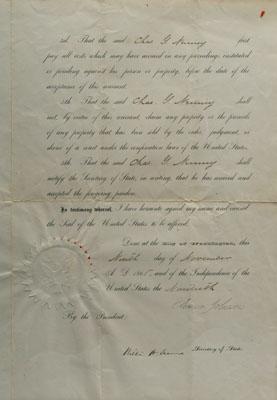 3d. That the said Chas. G. first
pay all costs which may have accrued in any proceedings instituted
or pending against his person or property, before the date of the
acceptance of this warrant.
4th. That the said Chas. G. shall
not, by virtue of this warrant, claim any property or the proceeds
of any property that has been sold by the order, judgment, or
decree of a court under the confiscation laws of the United States.
5th. That the said Chas. G. shall
notify the Secretary of State, in writing, that he has received and
accepted the foregoing pardon.
In testimony whereof, I have hereunto signed my name and caused
the Seal of the United States to be affixed.
Done at the CITY OF WASHINGTON, this
Ninth day of November
A. D. 1865, and of the Independence of the
United States the Ninetieth
Andrew Johnson
By the President:
Secretary of State.